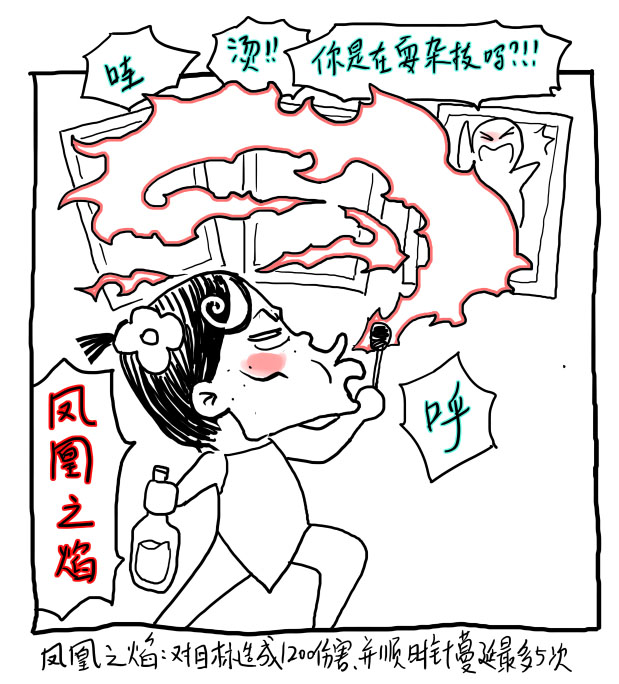 哇
烫!!
你是在耍杂技吗?!!!
呼
凤凰之焰
凤凰之焰:对目标造成1200伤害,并顺时针蔓延最多5次